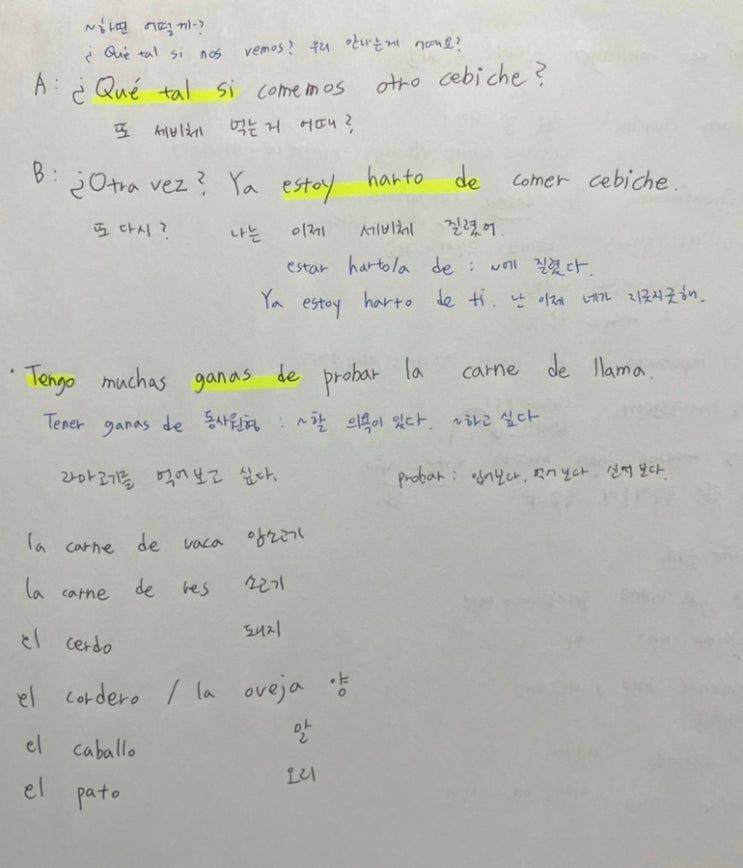 ~하면 어떨까?
¿ Qué tal si nos vemos? 우리 만나는게 어때요?
A: ¿Qué tal si comemos otro cebiche?
또 세비체 먹는거 어때?
B: ¿Otra vez? Ya estoy harto de comer cebiche.
또 다시? 나는 이제 세비체 질렸어.
estar harto/a de : ~에 질렸다.
Ya estoy harto de ti. 난 이제 네가 지긋지긋해.
· Tengo muchas ganas de probar la carne de llama.
Tener ganas de 동사원형 : ~할 의욕이 있다. ~하고 싶다
라마고기를 먹어보고 싶다. probar : 입어보다. 먹어보다. 신어보다.
la carne de vaca 암소고기
la carne de res 소고기
el cerdo 돼지
el cordero / la oveja 양
el caballo 말
el pato 오리